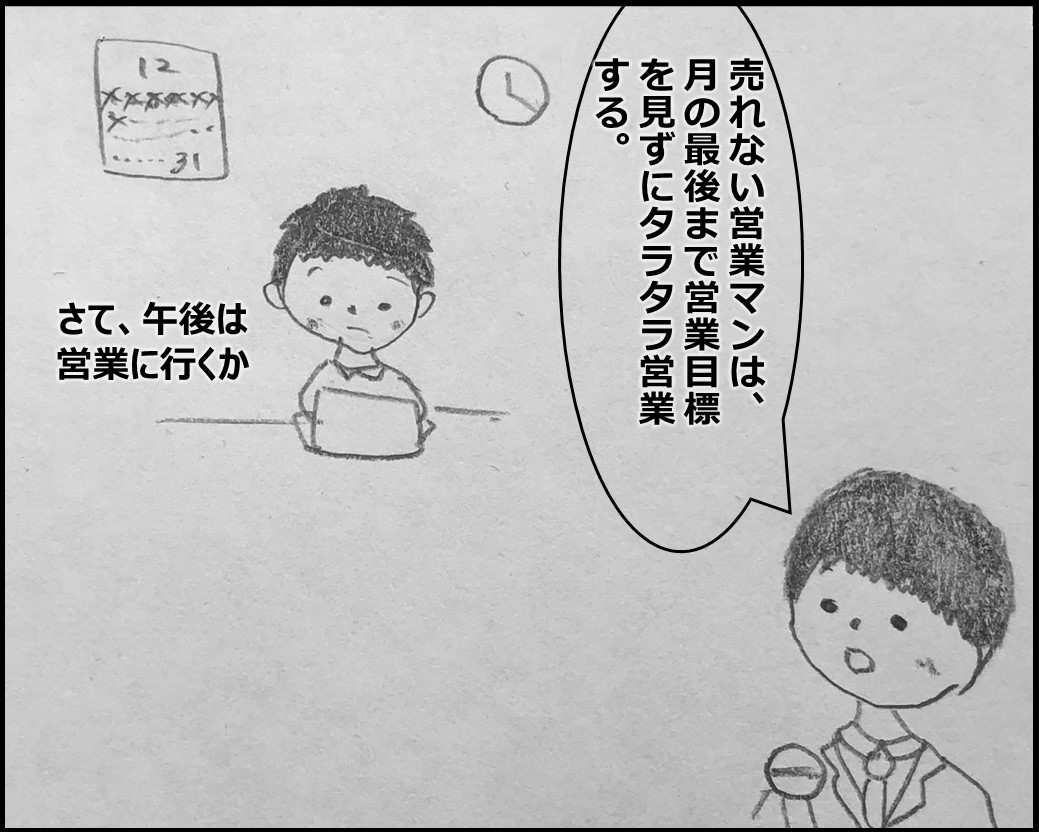 売れない営業マンは、
月の最後まで営業目標
を見ずにタラタラ営業
する。
12
31
さて、午後は
営業に行くか